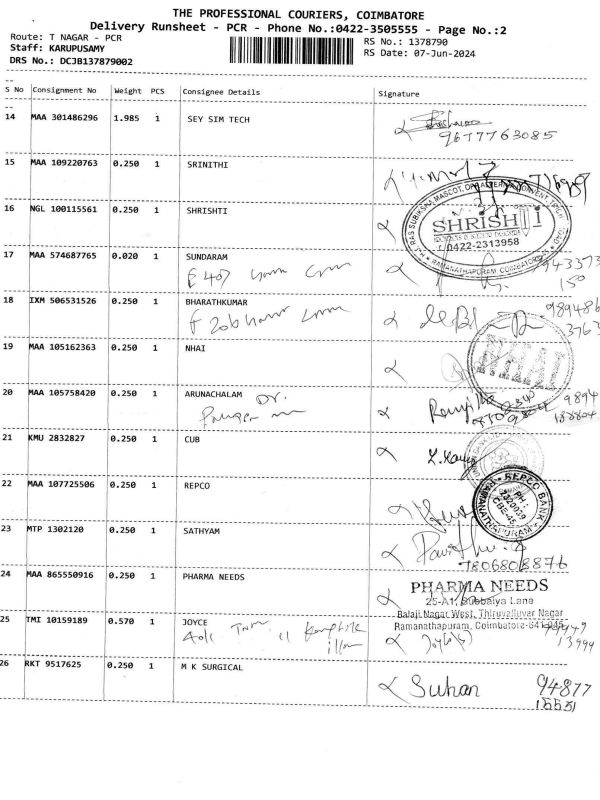 THE PROFESSIONAL COURIERS, COIMBATORE
Delivery Runsheet - PCR - Phone No.:0422-3505555 - Page No.:2
Route: T NAGAR - PCR
Staff: KARUPUSAMY
DRS No.: DCJB137879002
RS No.: 1378790
RS Date: 07-Jun-2024
S No Consignment No Weight PCS Consignee Details Signature
14 MAA 301486296 1.985 1 SEY SIM TECH
9677763085
15 MAA 109220763 0.250 1 SRINITHI
16 NGL 100115561 0.250 1 SHRISHTI
SHRISHTI
0422-2313958
RAMANATHAPURAM, COIMBATORE
17 MAA 574687765 0.020 1 SUNDARAM
E 407
943373
150
18 IXM 506531526 0.250 1 BHARATHKUMAR
F 206
989486
3763
19 MAA 105162363 0.250 1 NHAI
NHAI
20 MAA 105758420 0.250 1 ARUNACHALAM Dr.
9894
21 KMU 2832827 0.250 1 CUB
22 MAA 107725506 0.250 1 REPCO
REPCO BANK
RAMANATHAPURAM
PH :
2320039
CBE-45.
23 MTP 1302120 0.250 1 SATHYAM
7806808876
24 MAA 865550916 1 PHARMA NEEDS
PHARMA NEEDS
25-A1, Subbaiya Lane
Balaji Nagar West, Thiruvalluvar Nagar
Ramanathapuram, Coimbatore-641 045
25 TMI 10159189 0.570 1 JOYCE
13999
26 RKT 9517625 0.250 1 M K SURGICAL
Suhan 94877
15531